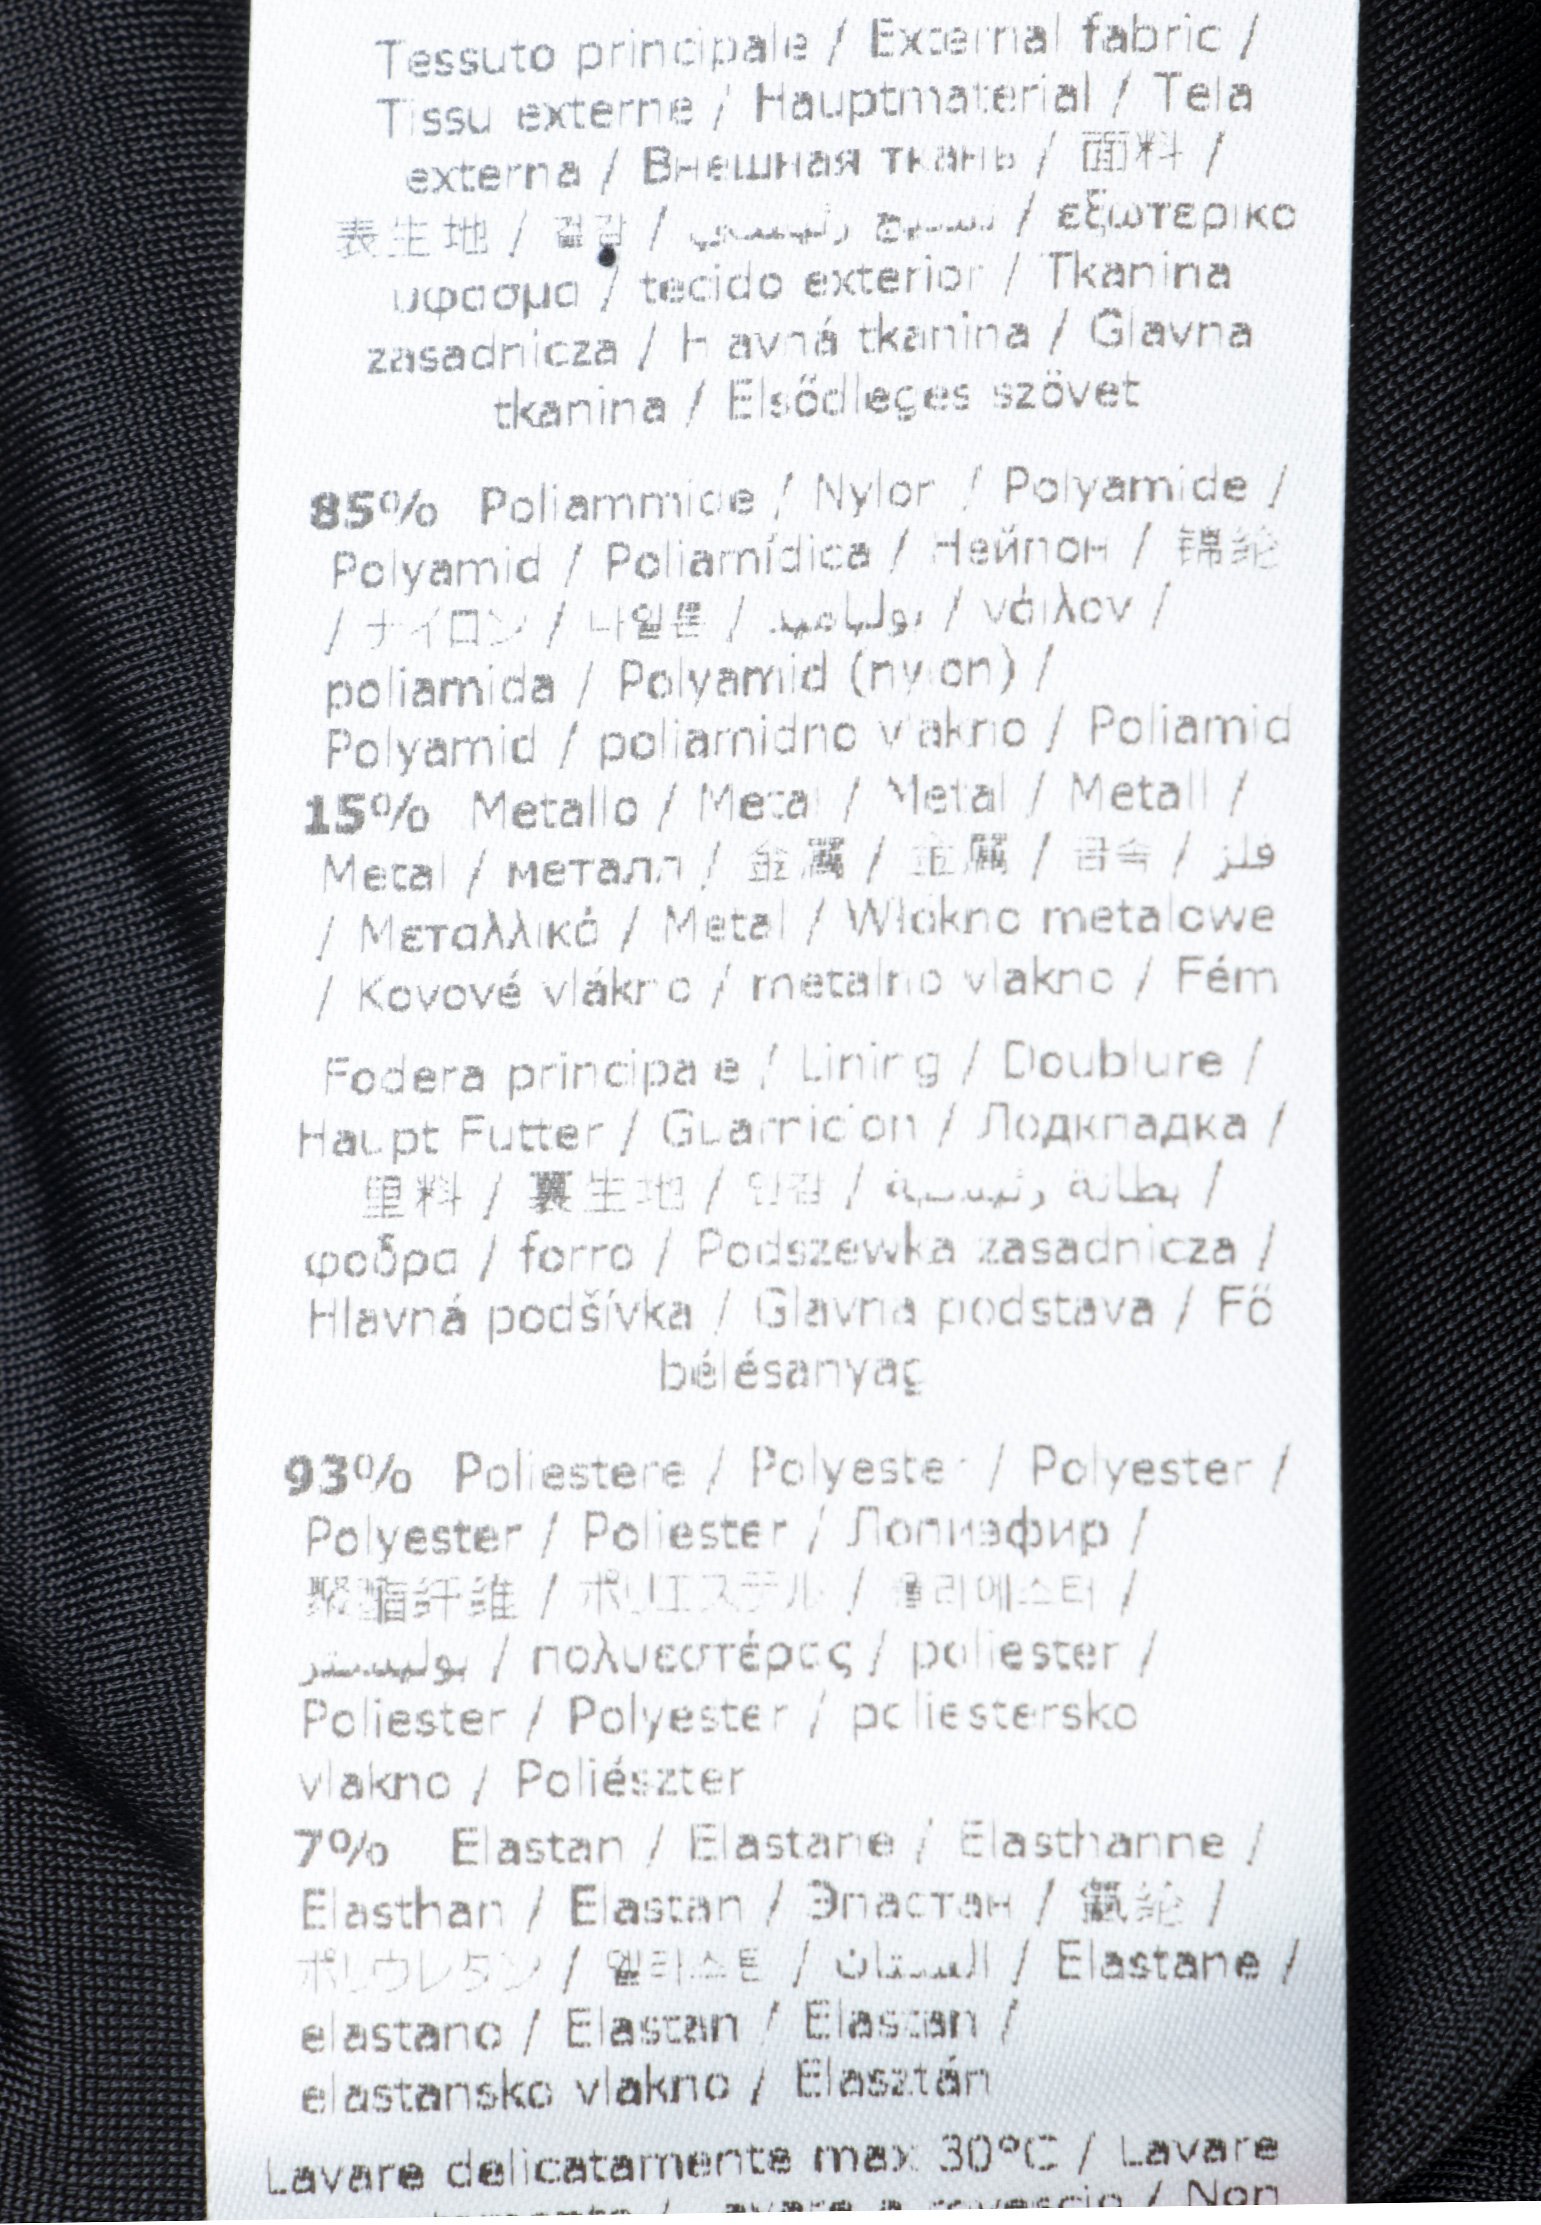 Tessuto principale / External fabric /
Tissu externe / Hauptmaterial / Tela
externa / Внешная ткань / 面料 /
表生地 / 겉감 / نسيج رئيسي / εξωτερικο
υφασμα / tecido exterior / Tkanina
zasadnicza / Hlavná tkanina / Glavna
tkanina / Elsődleges szövet
85% Poliammide / Nylon / Polyamide /
Polyamid / Poliamídica / Нейлон / 锦纶
/ ナイロン / 나일론 / بولياميد / νάιλον /
poliamida / Polyamid (nylon) /
Polyamid / poliamidno vlakno / Poliamid
15% Metallo / Metal / Metal / Metall /
Metal / металл / 金属 / 金属 / 금속 / فلز
/ Μεταλλικό / Metal / Włókno metalowe
/ Kovové vlákno / metalno vlakno / Fém
Fodera principale / Lining / Doublure /
Haupt Futter / Guarnicion / Подкладка /
里料 / 裏生地 / 안감 / بطانة رئيسية /
φοδρα / forro / Podszewka zasadnicza /
Hlavná podšívka / Glavna podstava / Fő
bélésanyag
93% Poliestere / Polyester / Polyester /
Polyester / Poliester / Полиэфир /
聚酯纤维 / ポリエステル / 폴리에스터 /
بوليستر / πολυεστέρας / poliester /
Poliester / Polyester / poliestersko
vlakno / Poliészter
7% Elastan / Elastane / Elasthanne /
Elasthan / Elastan / Эластан / 氨纶 /
ポリウレタン / 엘라스탄 / الستان / Elastane /
elastano / Elastan / Elastan /
elastansko vlakno / Elasztán
Lavare delicatamente max 30°C / Lavare
/ Lavare a rovescio / Non